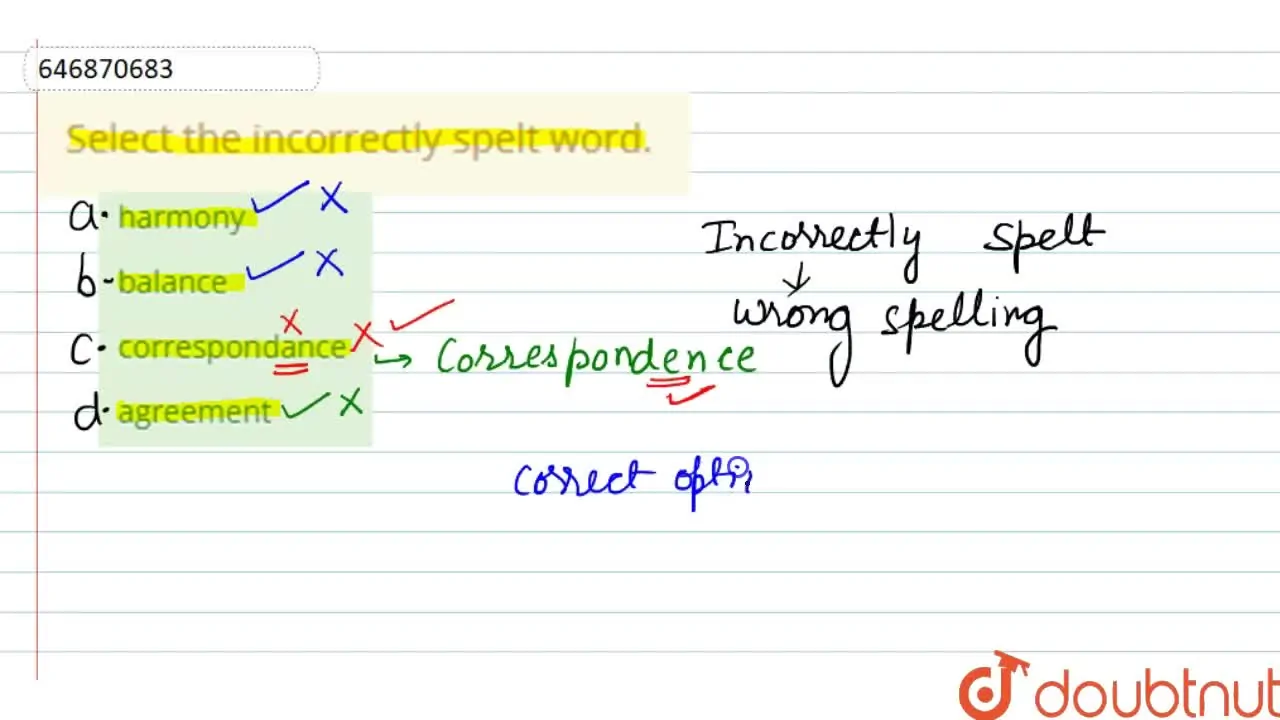 646870683
Select the incorrectly spelt word.
a. harmony ✓ x
b- balance ✓ x
c. correspondance x x ✓
→ Correspondence ✓
d. agreement ✓ x
Incorrectly spelt
↓
wrong spelling
correct opti
doubtnut